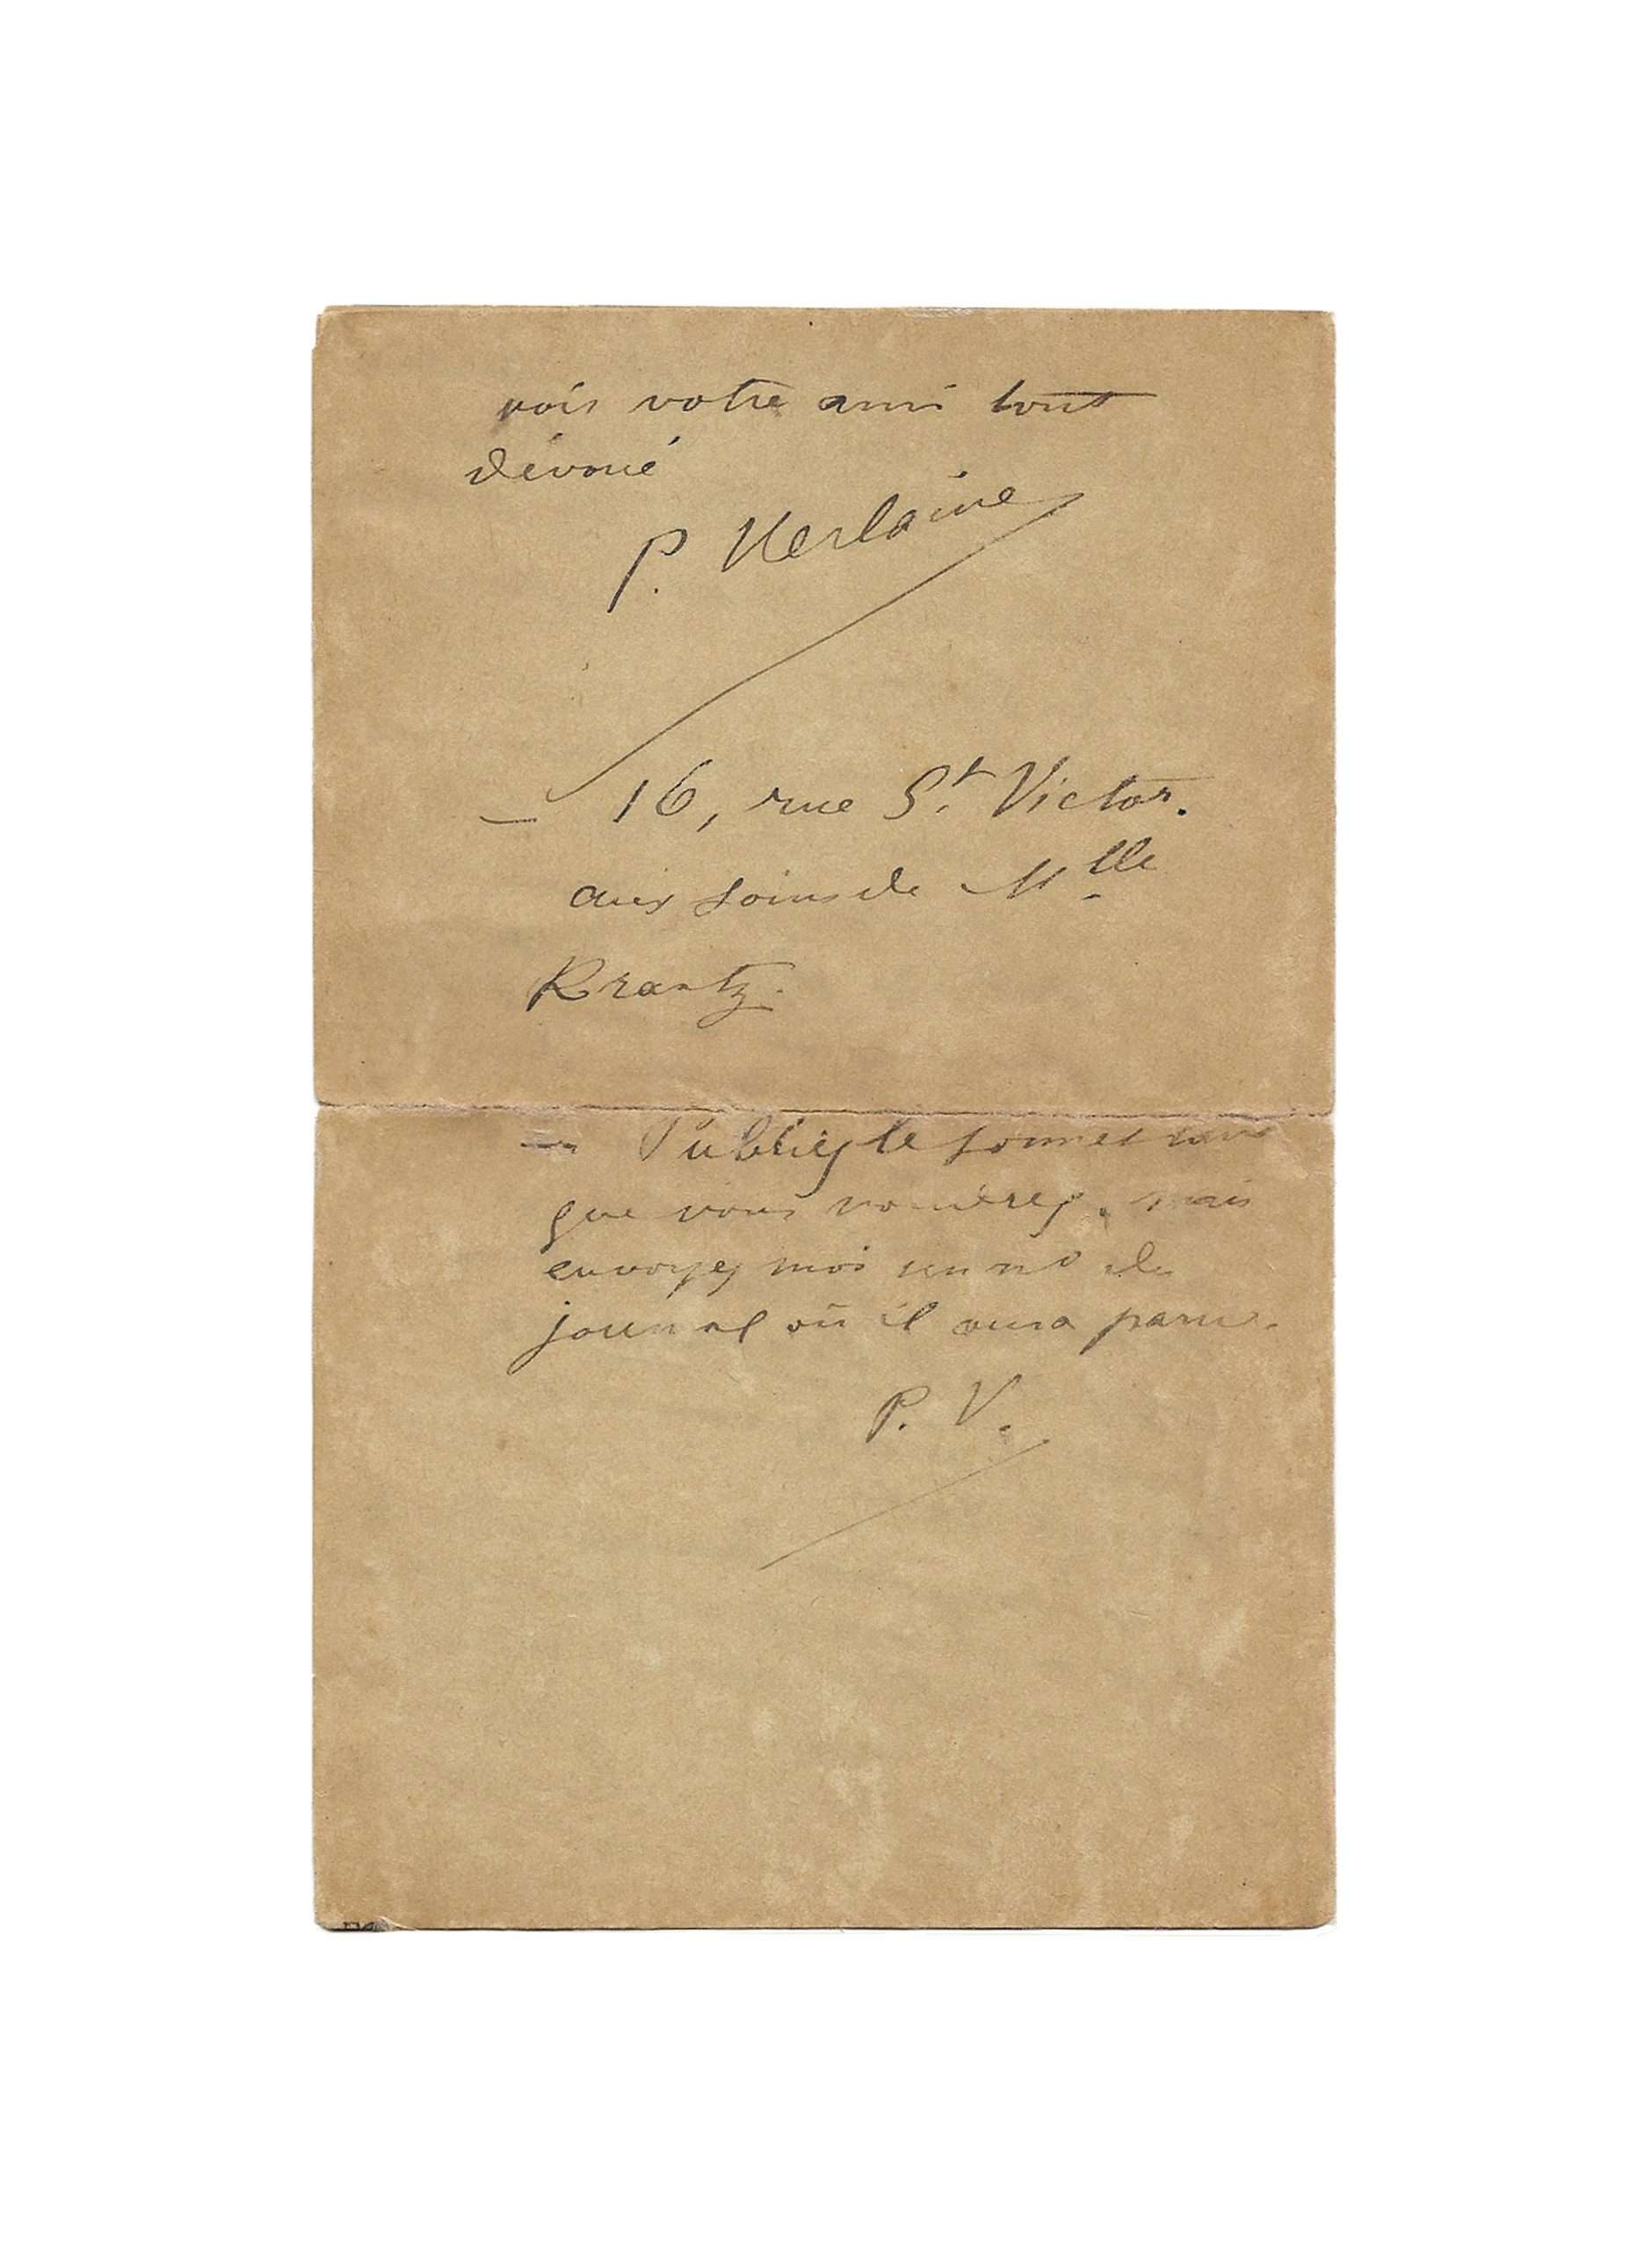 vois votre ami tout
dévoué
P. Verlaine
— 16, rue St. Victor.
aux soins de Mlle
Krantz.
— Publiez le sonnet
que vous voudrez, mais
envoyez moi un no du
journal où il aura paru.
P. V.